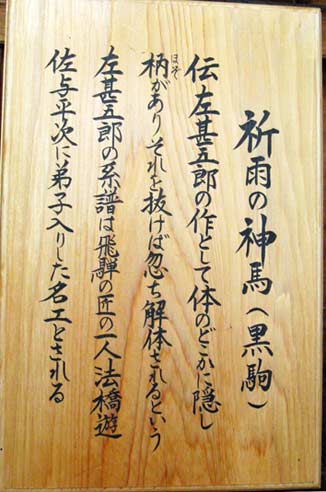 祈雨の神馬(黒駒)
伝 左甚五郎の作として体のどこかに隠し
柄がありそれを抜けば忽ち解体されるという
ほぞ
左甚五郎の系譜は飛騨の匠の一人法橋遊
佐与平次に弟子入りした名工とされる